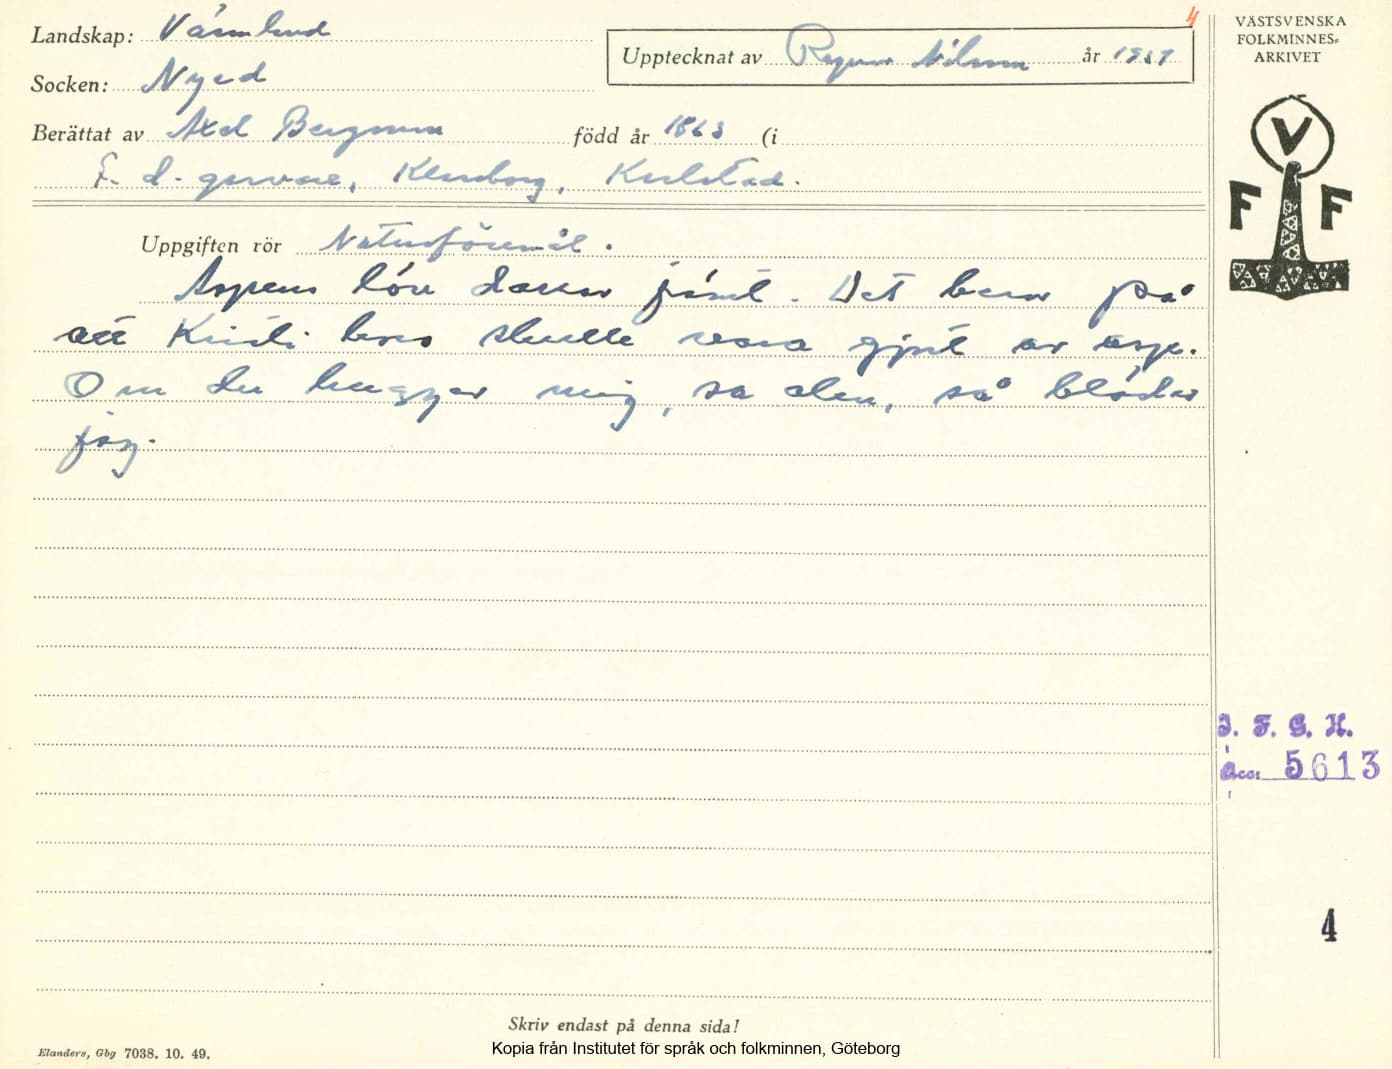 4
Landskap: Värmland
VÄSTSVENSKA
FOLKMINNES-
ARKIVET
Upptecknat av Ragnar Nilsson år 19
Socken: Nyed
Berättat av Axel Bergman född år 1863 (i
F. d. garvare, Karlstad.
V
F F
Uppgiften rör Naturföremål.
Aspens löv darrar jämt. Det beror på
att Kristi kors skulle vara gjort av asp.
Om du hugger mig, sa den, så blöder
jag.
I. F. G. H.
Acc: 5613
4
Skriv endast på denna sida!
Elanders, Gbg 7038. 10. 49.
Kopia från Institutet för språk och folkminnen, Göteborg